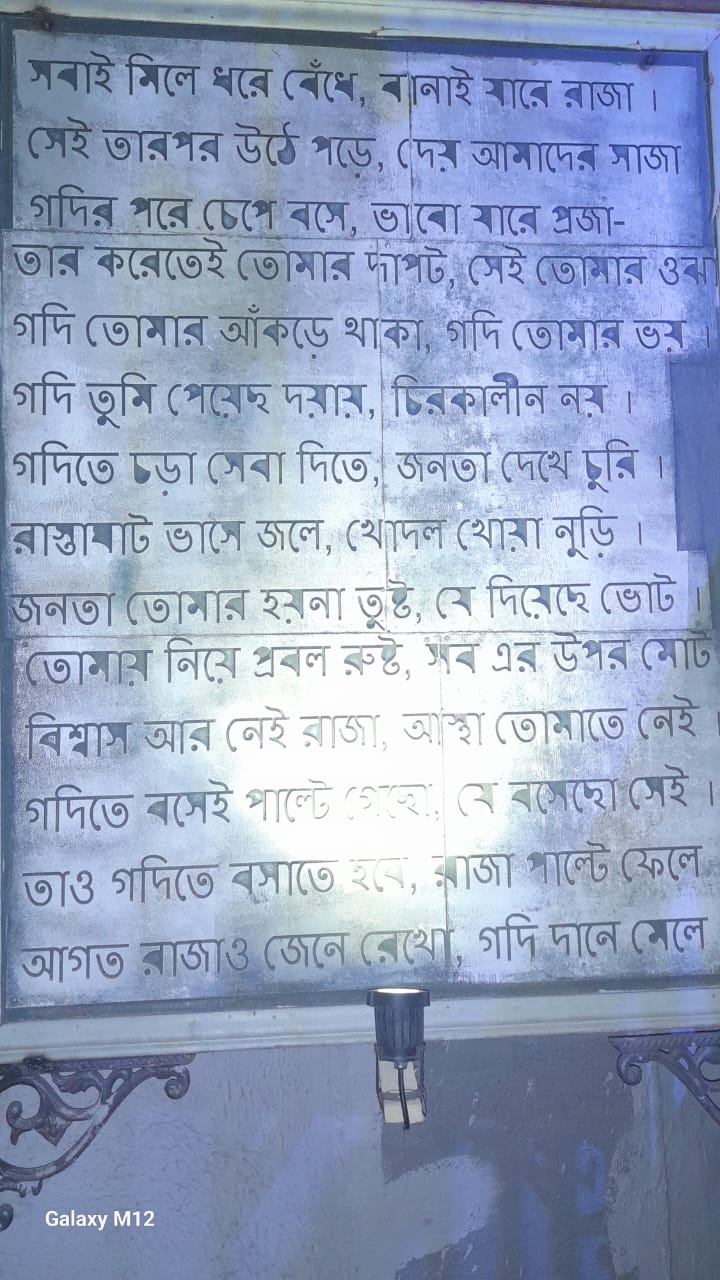 সবাই মিলে ধরে বেঁধে, বানাই যারে রাজা ।
সেই তারপর উঠে পড়ে, দেয় আমাদের সাজা
গদির পরে চেপে বসে, ভাবো যারে প্রজা-
তার করেতেই তোমার দাপট, সেই তোমার ওঝা
গদি তোমার আঁকড়ে থাকা, গদি তোমার ভয় ।
গদি তুমি পেয়েছ দয়ায়, চিরকালীন নয় ।
গদিতে চড়া সেবা দিতে, জনতা দেখে চুরি ।
রাস্তাঘাট ভাসে জলে, খোদল খোয়া নুড়ি ।
জনতা তোমার হয়না তুষ্ট, যে দিয়েছে ভোট ।
তোমায় নিয়ে প্রবল রুষ্ট, সব এর উপর মোট
বিশ্বাস আর নেই রাজা, আস্থা তোমাতে নেই ।
গদিতে বসেই পাল্টে গেছো, যে বসেছো সেই ।
তাও গদিতে বসাতে হবে, রাজা পাল্টে ফেলে
আগত রাজাও জেনে রেখো, গদি দানে মেলে
Galaxy M12